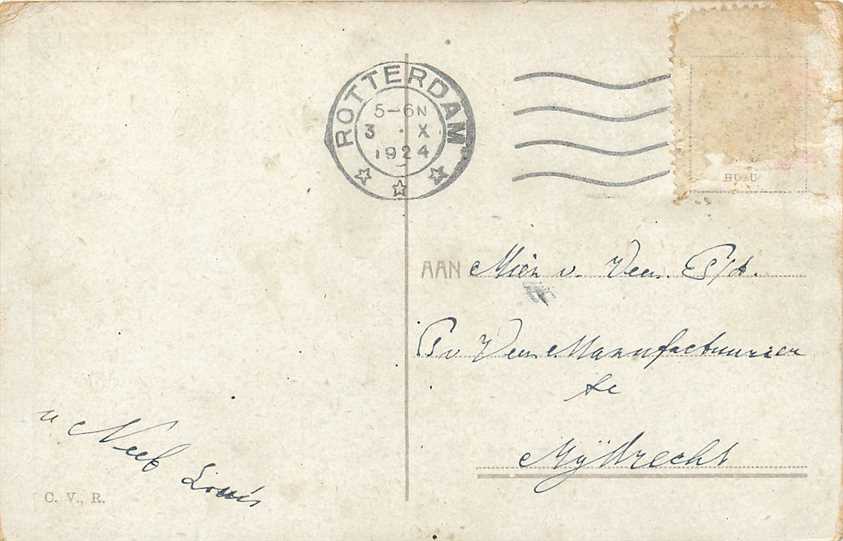 ROTTERDAM
5-6N
3 · X
1924
AAN Mien v. Veen. P/A.
P v Veen Manufacturier
te
Mijdrecht
u Neef Louis
C. V., R.